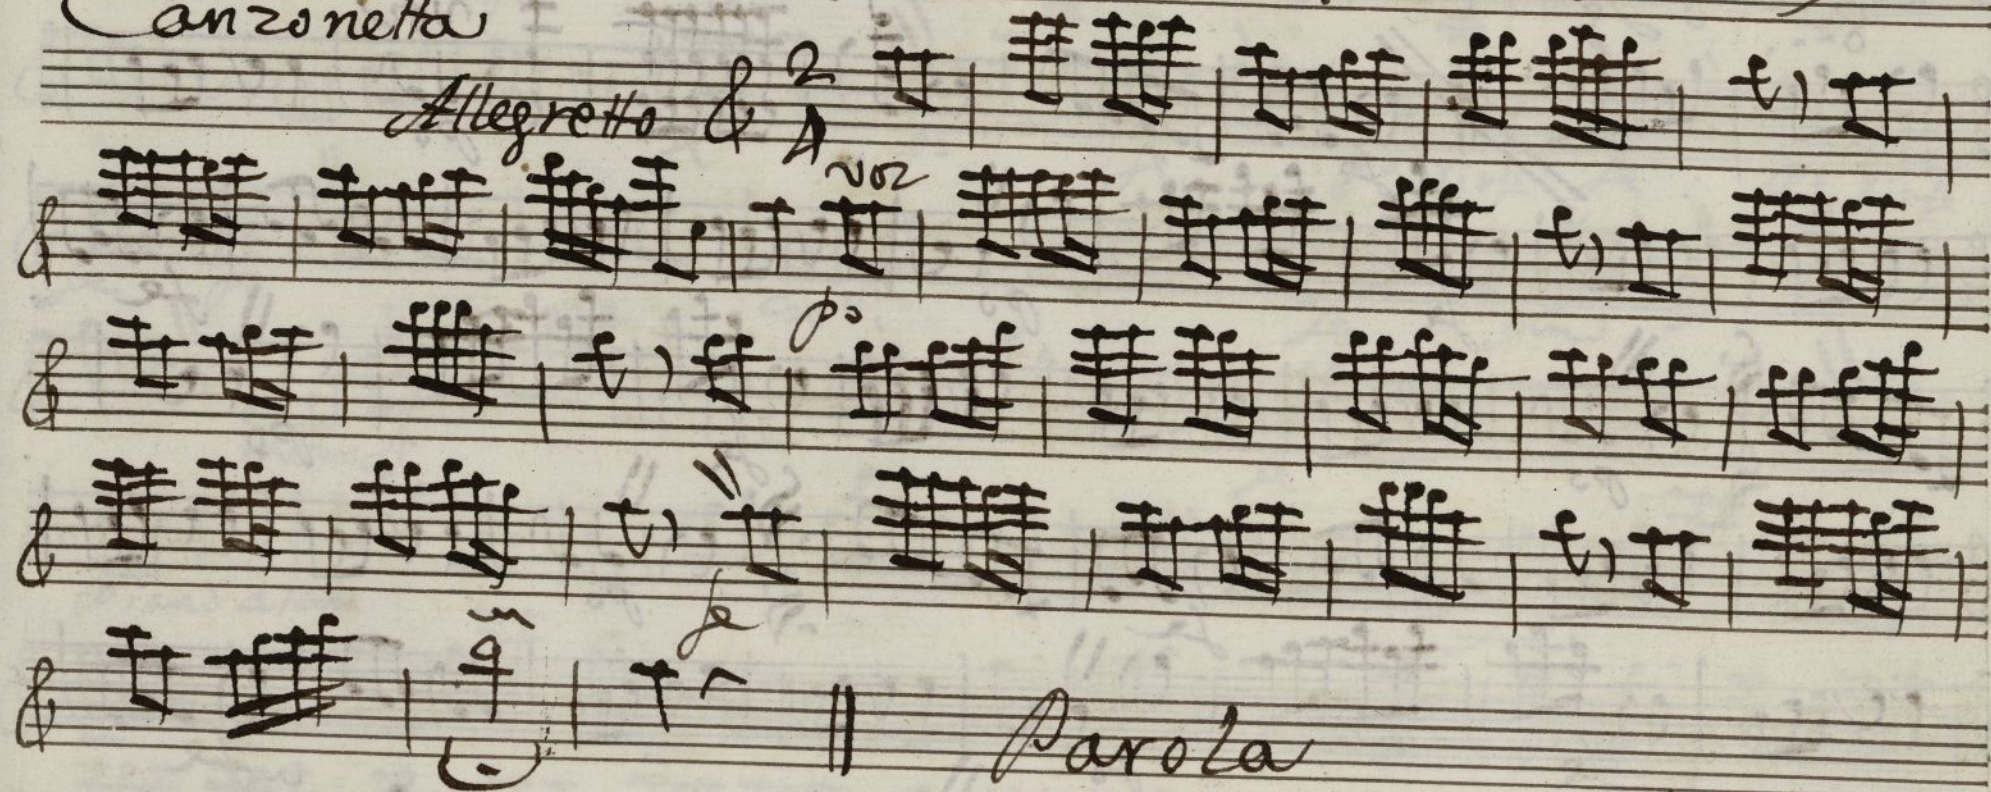 Canzonetta
Allegretto 2
4
voz
po
fe
Parola